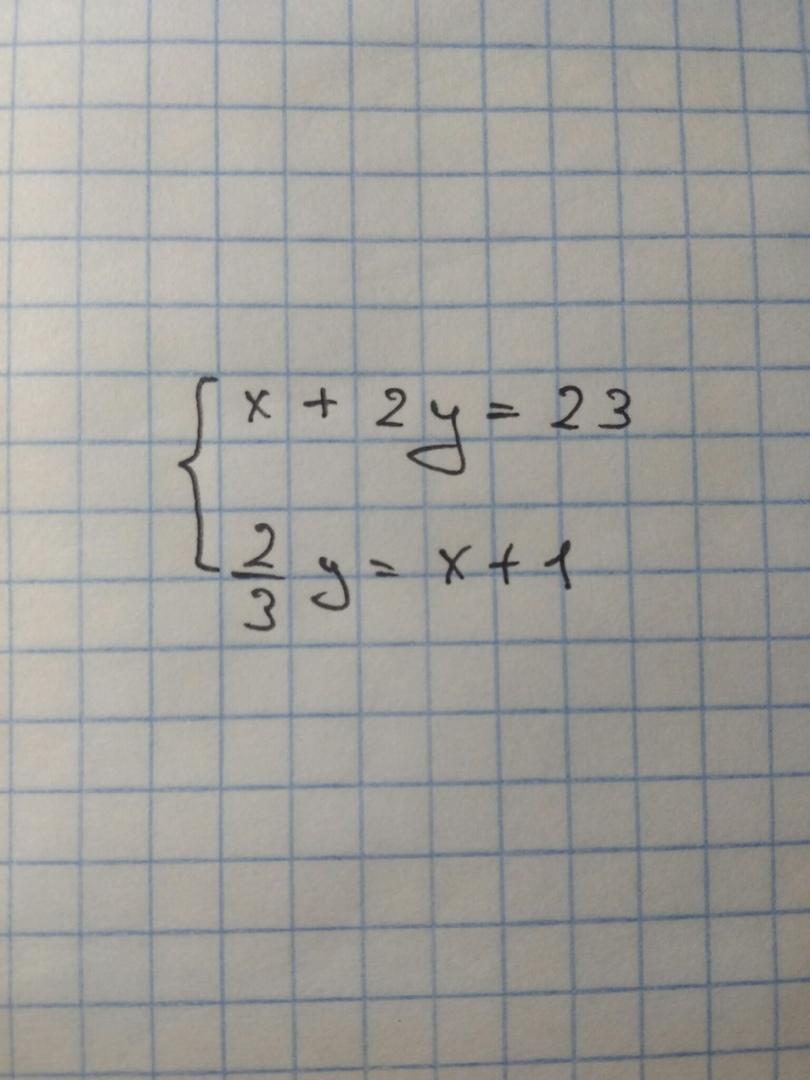 x + 2y = 23
2/3 y = x + 1